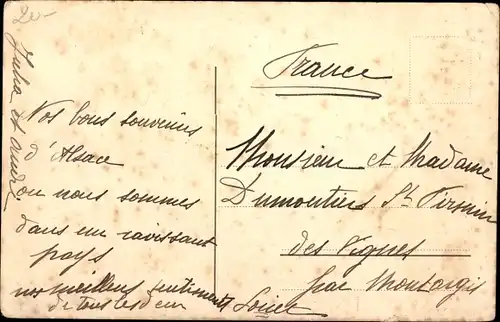 20-
Julia et André
Nos bons souvenirs
d'Alsace
ou nous sommes
dans un ravissant
pays
nos meilleurs sentiments
de tous les deux
France
Monsieur et Madame
Dumoutiers St Firmin
des Vignes
par Montargis
Loiret